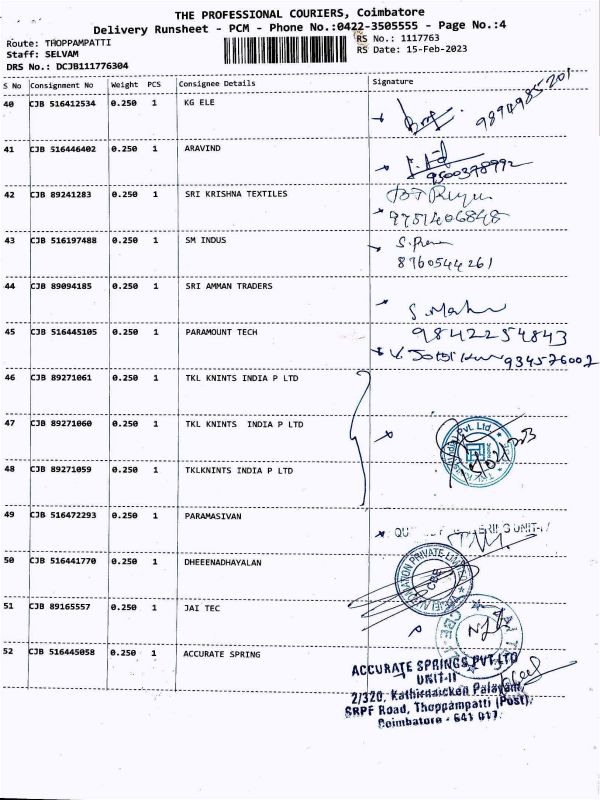 THE PROFESSIONAL COURIERS, Coimbatore
Delivery Runsheet - PCM - Phone No.:0422-3505555 - Page No.:4
Route: THOPPAMPATTI
RS No.: 1117763
Staff: SELVAM
RS Date: 15-Feb-2023
DRS No.: DCJB111776304
S No Consignment No Weight PCS Consignee Details Signature
40 CJB 516412534 0.250 1 KG ELE
9894985201
41 CJB 516446402 0.250 1 ARAVIND
9500378992
42 CJB 89241283 0.250 1 SRI KRISHNA TEXTILES
9751406848
43 CJB 516197488 0.250 1 SM INDUS
8760544261
44 CJB 89094185 0.250 1 SRI AMMAN TRADERS
45 CJB 516445105 0.250 1 PARAMOUNT TECH
9842254843
934576002
46 CJB 89271061 0.250 1 TKL KNINTS INDIA P LTD
47 CJB 89271060 0.250 1 TKL KNINTS INDIA P LTD
48 CJB 89271059 0.250 1 TKLKNINTS INDIA P LTD
49 CJB 516472293 0.250 1 PARAMASIVAN
50 CJB 516441770 0.250 1 DHEEENADHAYALAN
51 CJB 89165557 0.250 1 JAI TEC
52 CJB 516445058 0.250 1 ACCURATE SPRING
ACCURATE SPRINGS PVT LTD
UNIT-II
2/320, Kathirnaicken Palayam,
SRPF Road, Thoppampatti (Post),
Coimbatore - 641 017.